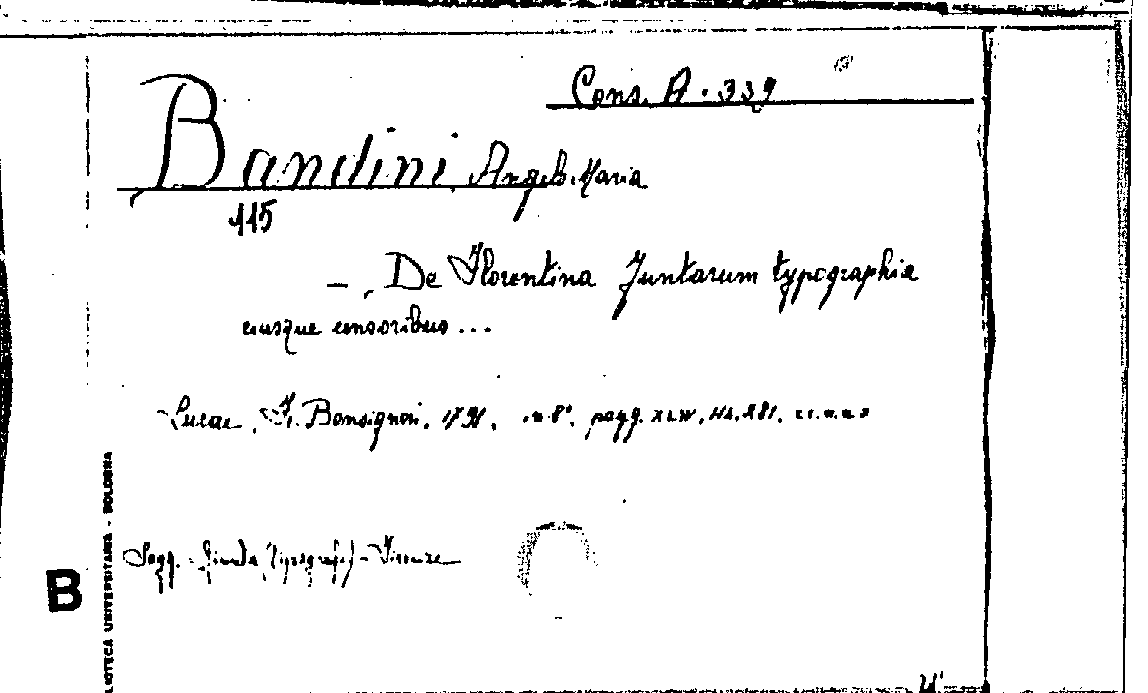 Cons. A. 339
Bandini Angelo Maria
115
— . De Florentina Juntarum typographia
eiusque censoribus ...
Lucae, F. Bonsignori, 1791, in 8°. pagg.
Sogg. - Giunta, (Tipografi) - Firenze
B
BIBLIOTECA UNIVERSITARIA - BOLOGNA